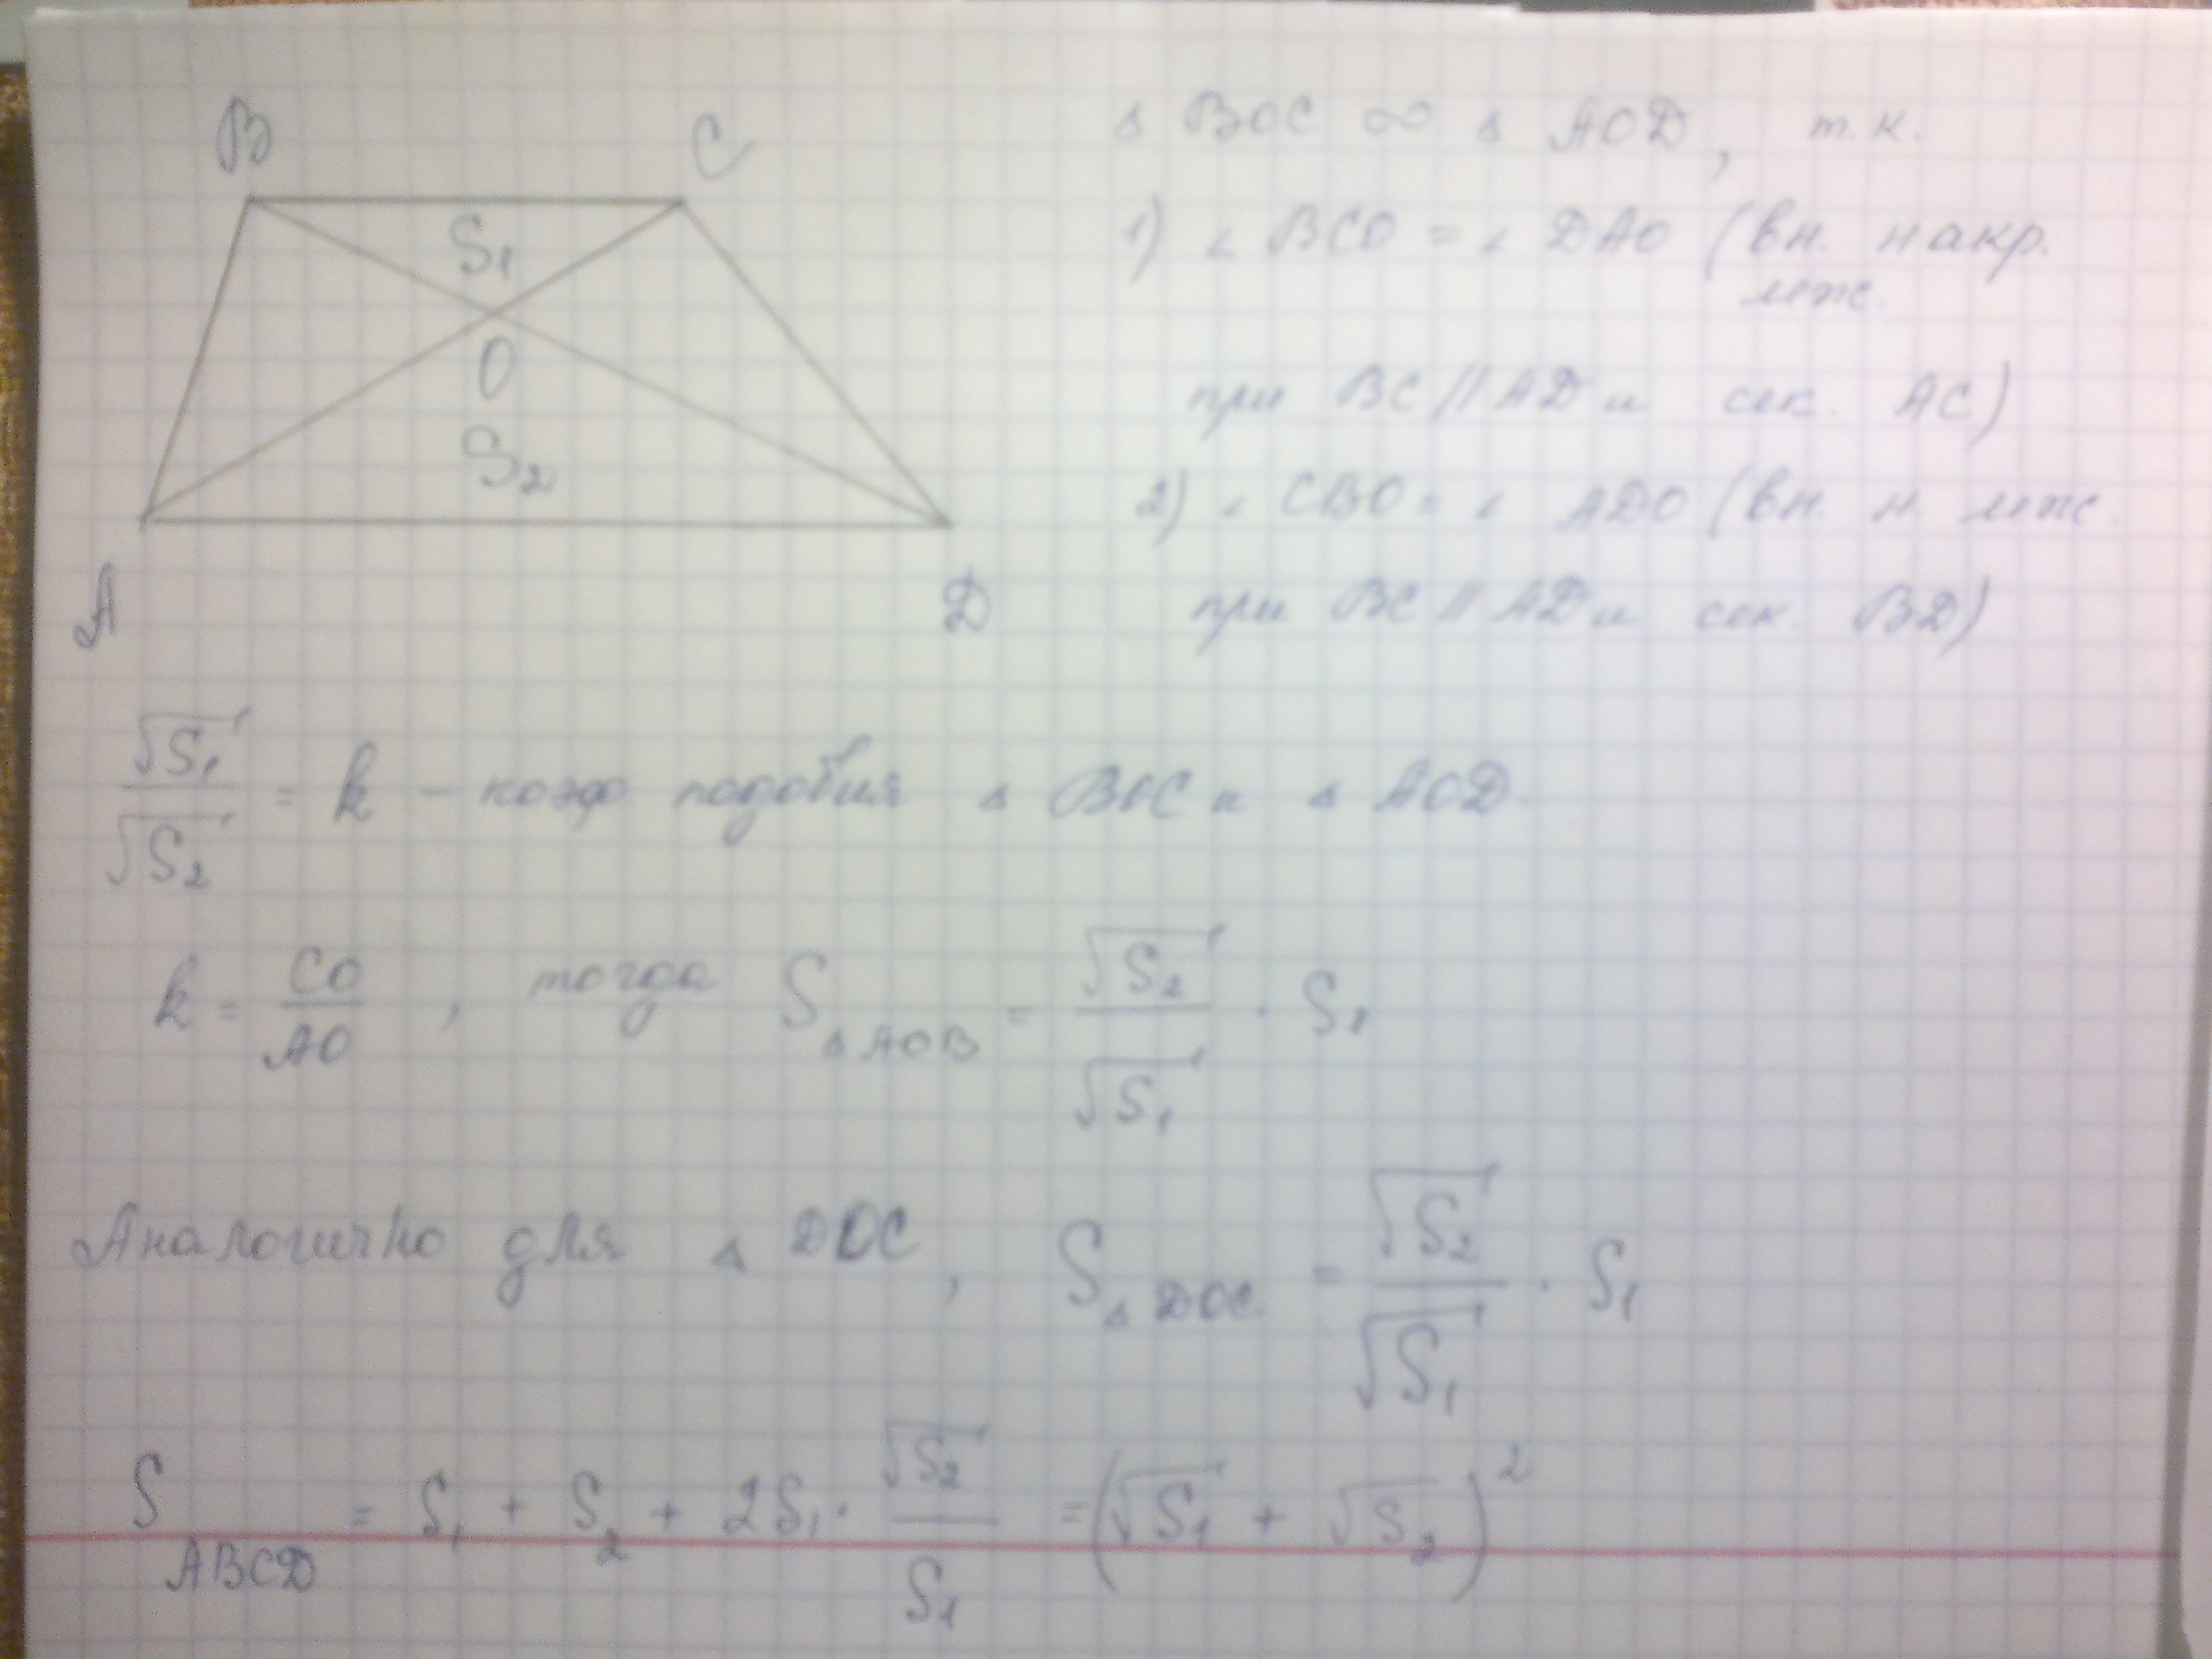 B C
S₁
O
S₂
A D
Δ BOC ∞ Δ AOD, т.к.
1) ∠ BCO = ∠ DAO (вн. накр.
леж.
при BC // AD и сек. AC)
2) ∠ CBO = ∠ ADO (вн. н. леж.
при BC // AD и сек. BD)
√S₁ / √S₂ = k – коэф. подобия Δ BOC и Δ AOD.
k = CO / AO , тогда S Δ AOB = √S₂ / √S₁ · S₁
Аналогично для Δ DOC, S Δ DOC = √S₂ / √S₁ · S₁
S ABCD = S₁ + S₂ + 2S₁ · √S₂ / S₁ = (√S₁ + √S₂)²